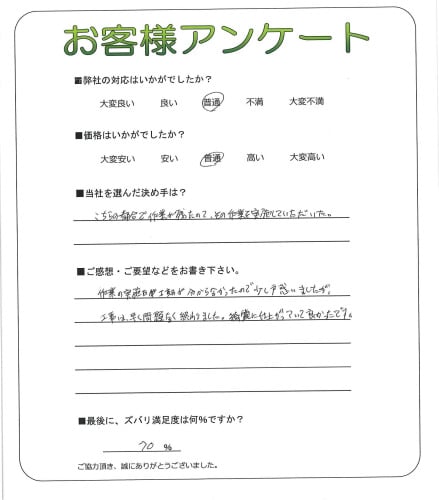 お客様アンケート
■弊社の対応はいかがでしたか？
大変良い 良い 普通 不満 大変不満
■価格はいかがでしたか？
大変安い 安い 普通 高い 大変高い
■当社を選んだ決め手は？
こちらの都合で作業が残たので、その作業を実施していただいた。
■ご感想・ご要望などをお書き下さい。
作業の実施日が分からなかったので少し戸惑いましたが、
工事は、早く問題なく終わりました。綺麗に仕上がっていて良かったです。
■最後に、ズバリ満足度は何％ですか？
70 ％
ご協力頂き、誠にありがとうございました。